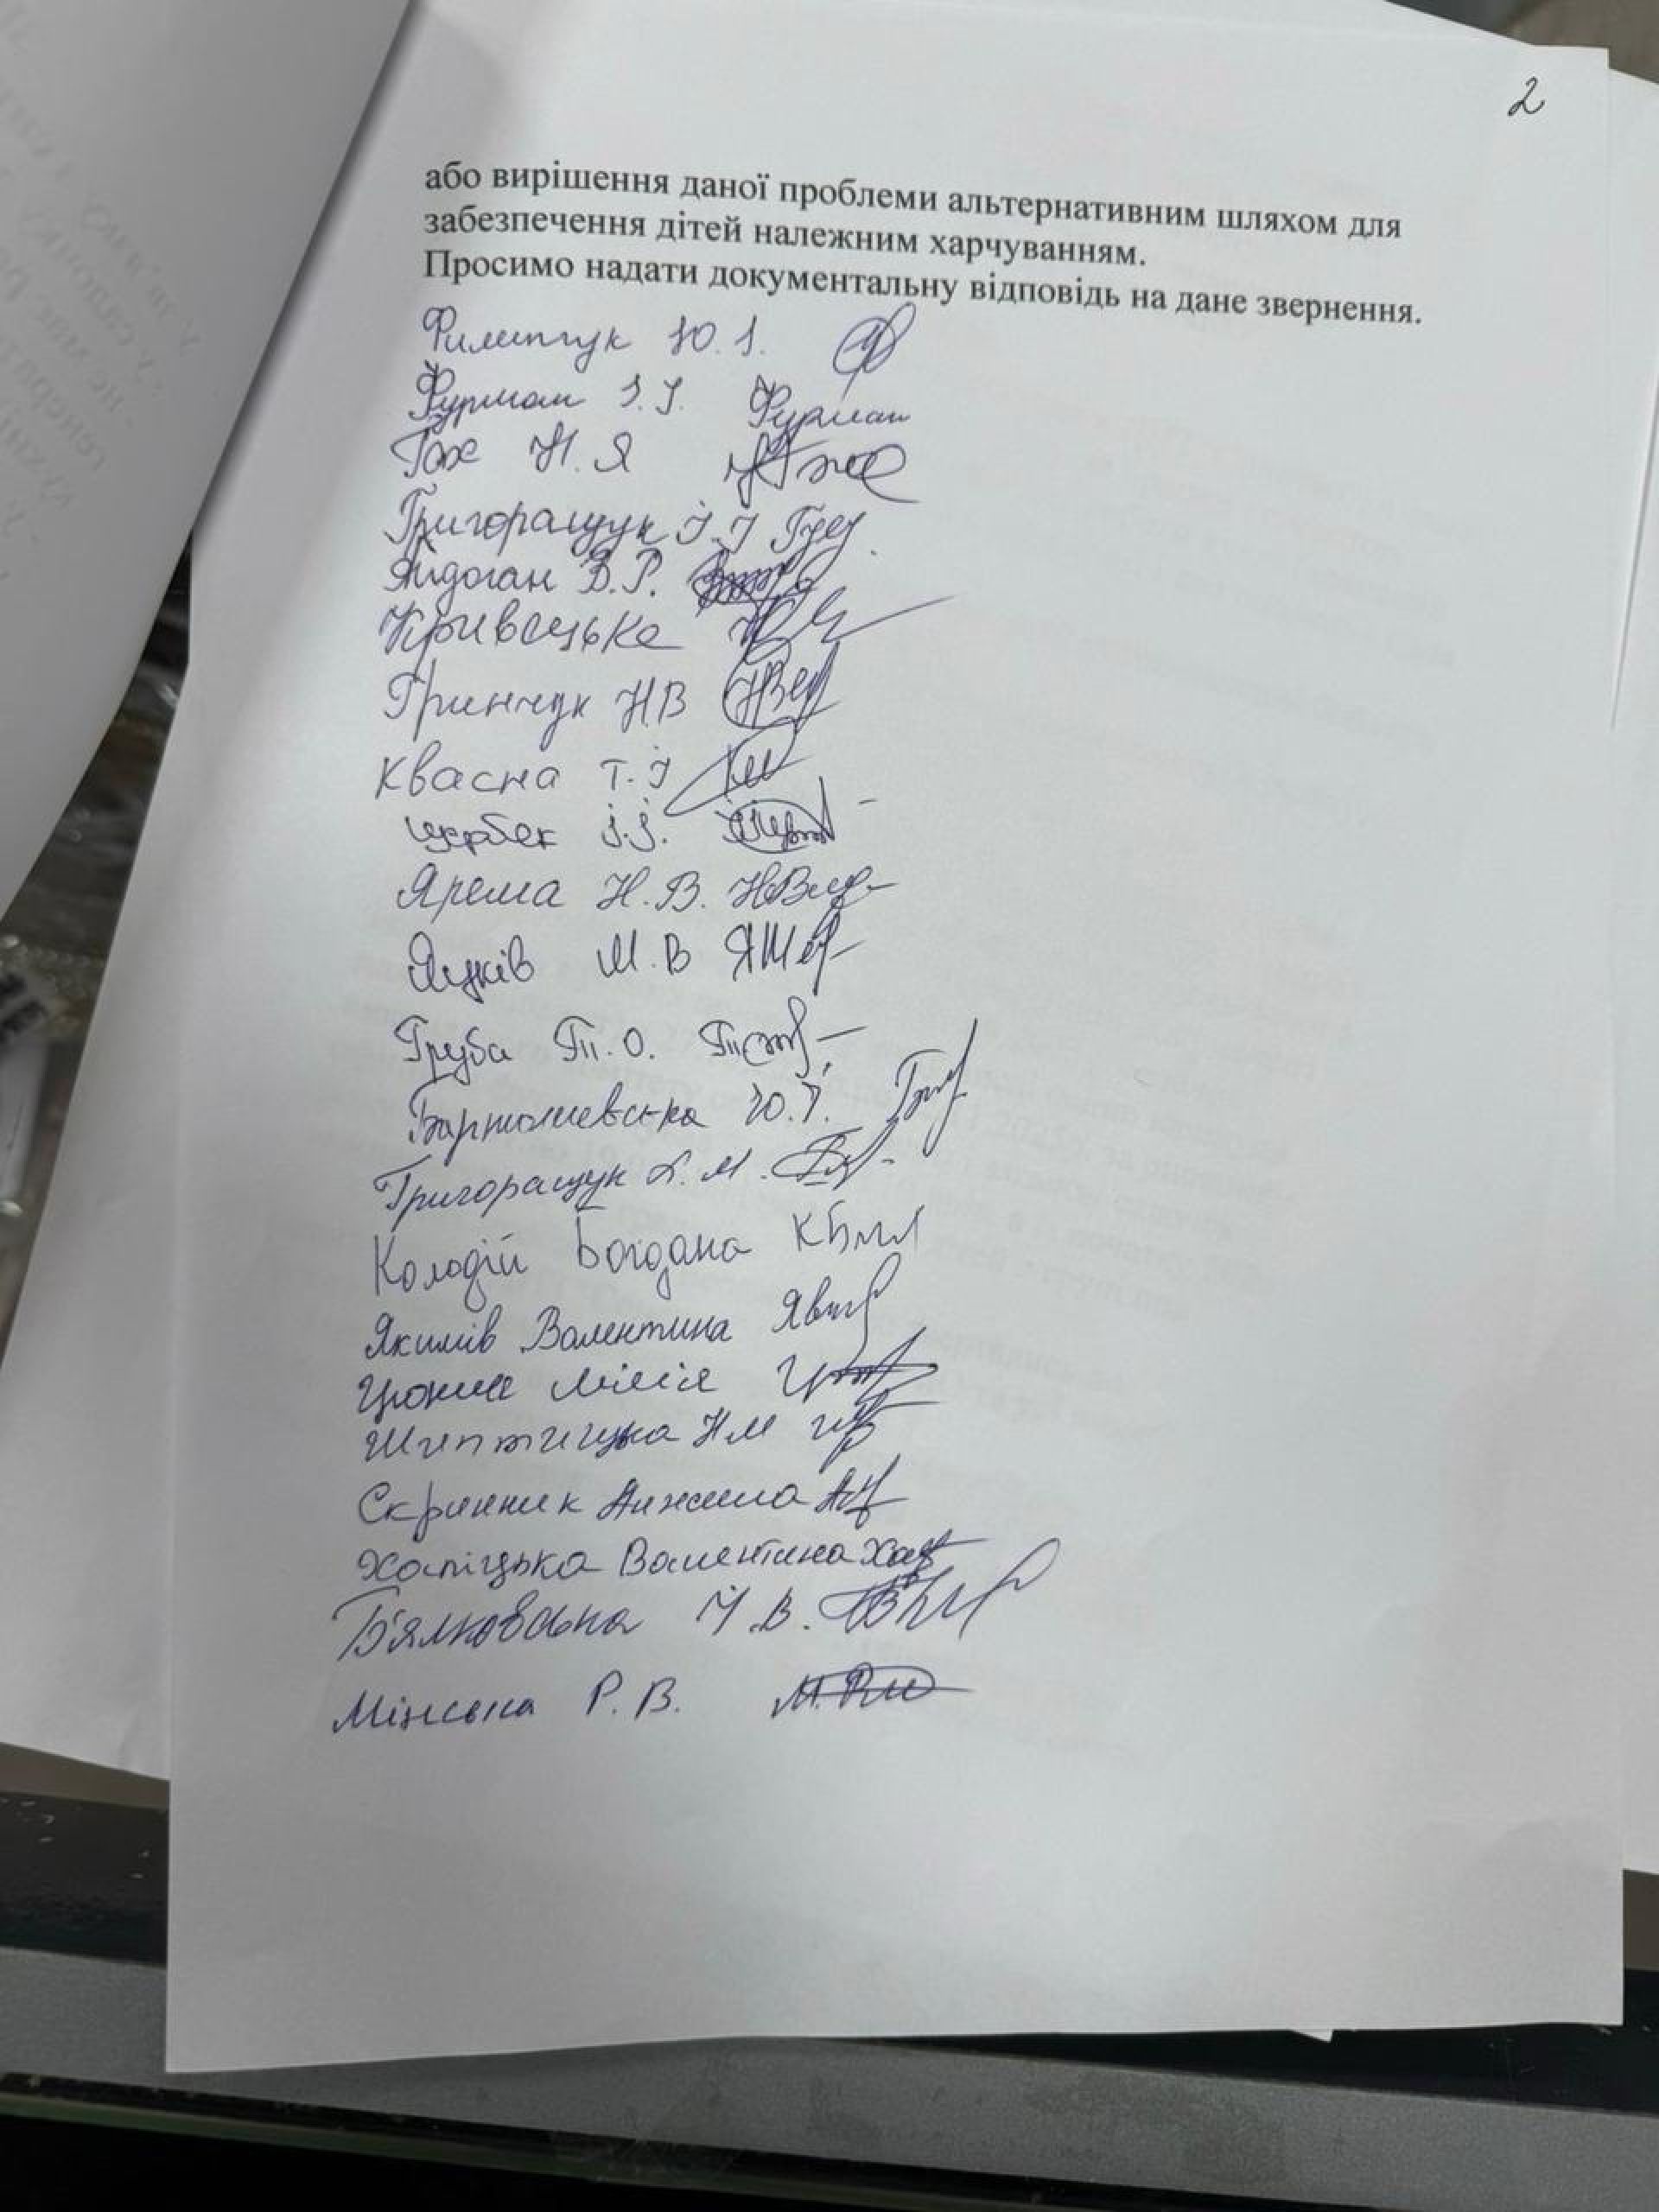 2
або вирішення даної проблеми альтернативним шляхом для
забезпечення дітей належним харчуванням.
Просимо надати документальну відповідь на дане звернення.
Филипчук Ю.І.
Фурман І.І. Фурман
Гах Н.Я
Григоращук І.І
Яйдоган В.Р.
Кривецька
Гринчук НВ
Квасна Т.І
Щербек І.І.
Ярема Н.В.
Яцків М.В
Груба Т.О.
Бартошевська Ю.І.
Григоращук Л.М.
Колодій Богдана
Якимів Валентина
Лілія
Шептицька НМ
Скринник Анжела
Халіцька Валентина
Б'ялковська І.В.
Мінська Р.В.